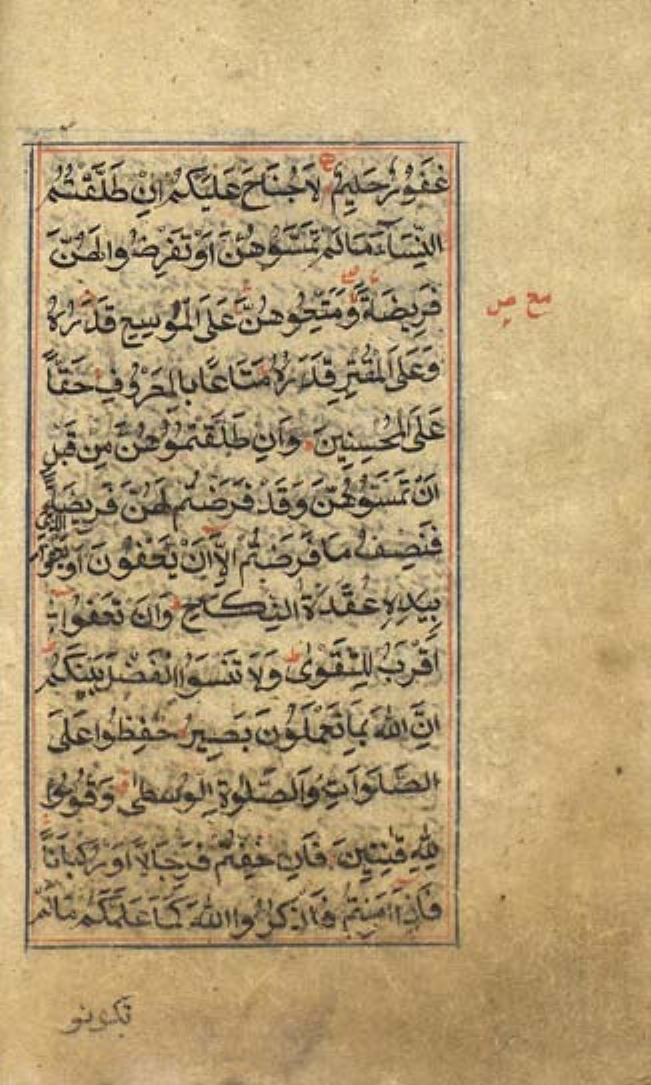 غَفُورٌ حَلِيمٌ لَا جُنَاحَ عَلَيْكُمْ اِنْ طَلَّقْتُمُ
النِّسَاءَ مَا لَمْ تَمَسُّوهُنَّ اَوْ تَفْرِضُوا لَهُنَّ
فَرِيضَةً وَمَتِّعُوهُنَّ عَلَى الْمُوسِعِ قَدَرُهُ
مع ص
وَعَلَى الْمُقْتِرِ قَدَرُهُ مَتَاعًا بِالْمَعْرُوفِ حَقًّا
عَلَى الْمُحْسِنِينَ وَاِنْ طَلَّقْتُمُوهُنَّ مِنْ قَبْلِ
اَنْ تَمَسُّوهُنَّ وَقَدْ فَرَضْتُمْ لَهُنَّ فَرِيضَةً
فَنِصْفُ مَا فَرَضْتُمْ اِلَّا اَنْ يَعْفُونَ اَوْ يَعْفُوَا الَّذِي
بِيَدِهِ عُقْدَةُ النِّكَاحِ وَاَنْ تَعْفُوا
اَقْرَبُ لِلتَّقْوٰى وَلَا تَنْسَوُا الْفَضْلَ بَيْنَكُمْ
اِنَّ اللّٰهَ بِمَا تَعْمَلُونَ بَصِيرٌ حٰفِظُوا عَلَى
الصَّلَوَاتِ وَالصَّلٰوةِ الْوُسْطٰى وَقُومُوا
لِلّٰهِ قٰنِتِينَ فَاِنْ خِفْتُمْ فَرِجَالًا اَوْ رُكْبَانًا
فَاِذَا اَمِنْتُمْ فَاذْكُرُوا اللّٰهَ كَمَا عَلَّمَكُمْ مَا لَمْ
تكونو